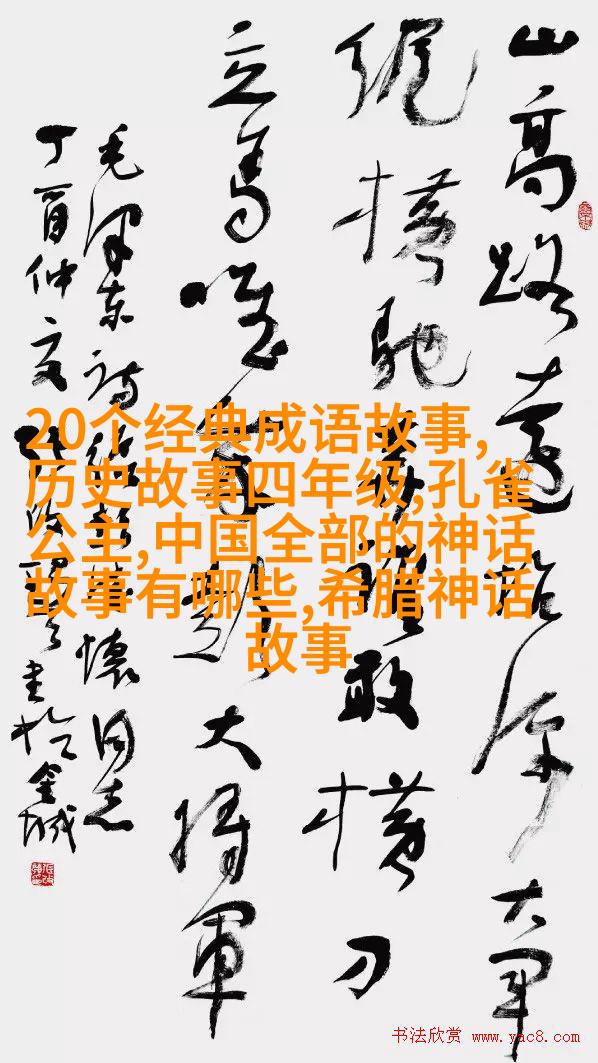 山高路遠坑深大军
纵横驰奔谁敢横刀
立马唯我彭大将軍
毛泽东诗给彭德懷同志
丁酉仲夏书于金城
20个经典成语故事,
历史故事四年级,孔雀
公主,中国全部的神话
故事有哪些,希腊神话
故事
书法欣赏 www.yac8.com